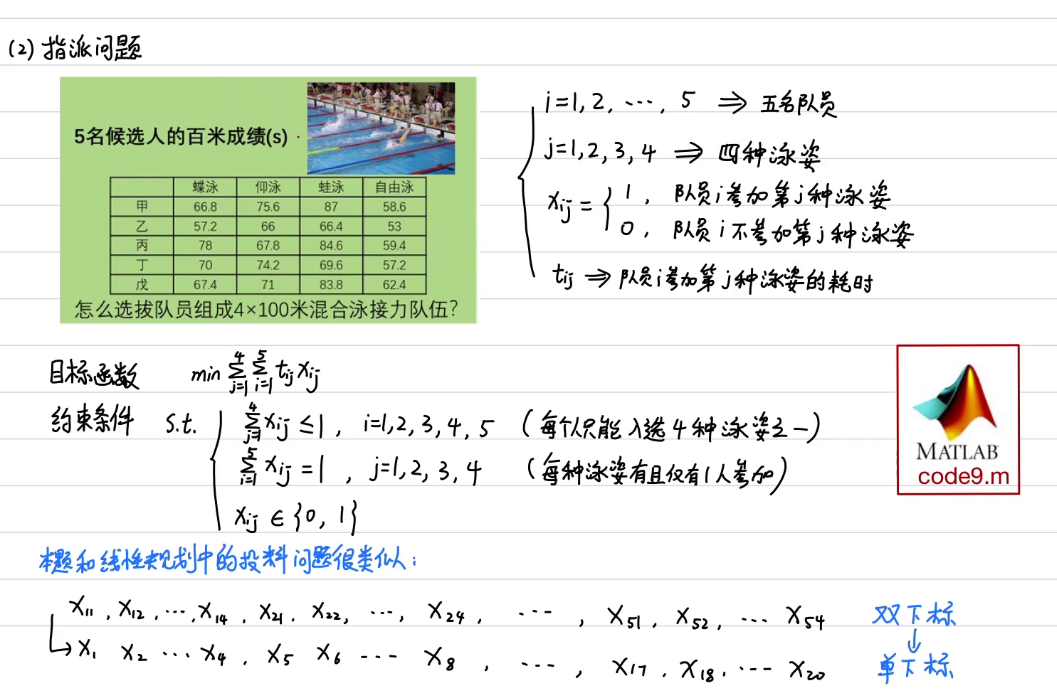 (2) 指派问题
5名候选人的百米成绩(s)
蝶泳 仰泳 蛙泳 自由泳
甲 66.8 75.6 87 58.6
乙 57.2 66 66.4 53
丙 78 67.8 84.6 59.4
丁 70 74.2 69.6 57.2
戊 67.4 71 83.8 62.4
怎么选拔队员组成4×100米混合泳接力队伍?
i=1,2,…,5 ⇒ 五名队员
j=1,2,3,4 ⇒ 四种泳姿
xij = { 1, 队员i参加第j种泳姿
0, 队员i不参加第j种泳姿
tij ⇒ 队员i参加第j种泳姿的耗时
目标函数 min ∑(j=1→4) ∑(i=1→5) tij xij
约束条件 s.t. ∑(j=1→4) xij ≤ 1, i=1,2,3,4,5 (每个人只能入选4种泳姿之一)
∑(i=1→5) xij = 1, j=1,2,3,4 (每种泳姿有且仅有1人参加)
xij ∈ {0,1}
MATLAB
code9.m
本题和线性规划中的投料问题很类似:
x11, x12, …, x14, x21, x22, …, x24, …, x51, x52, … x54 双下标
↓
→ x1 x2 … x4, x5 x6 … x8, …, x17, x18, … x20 单下标